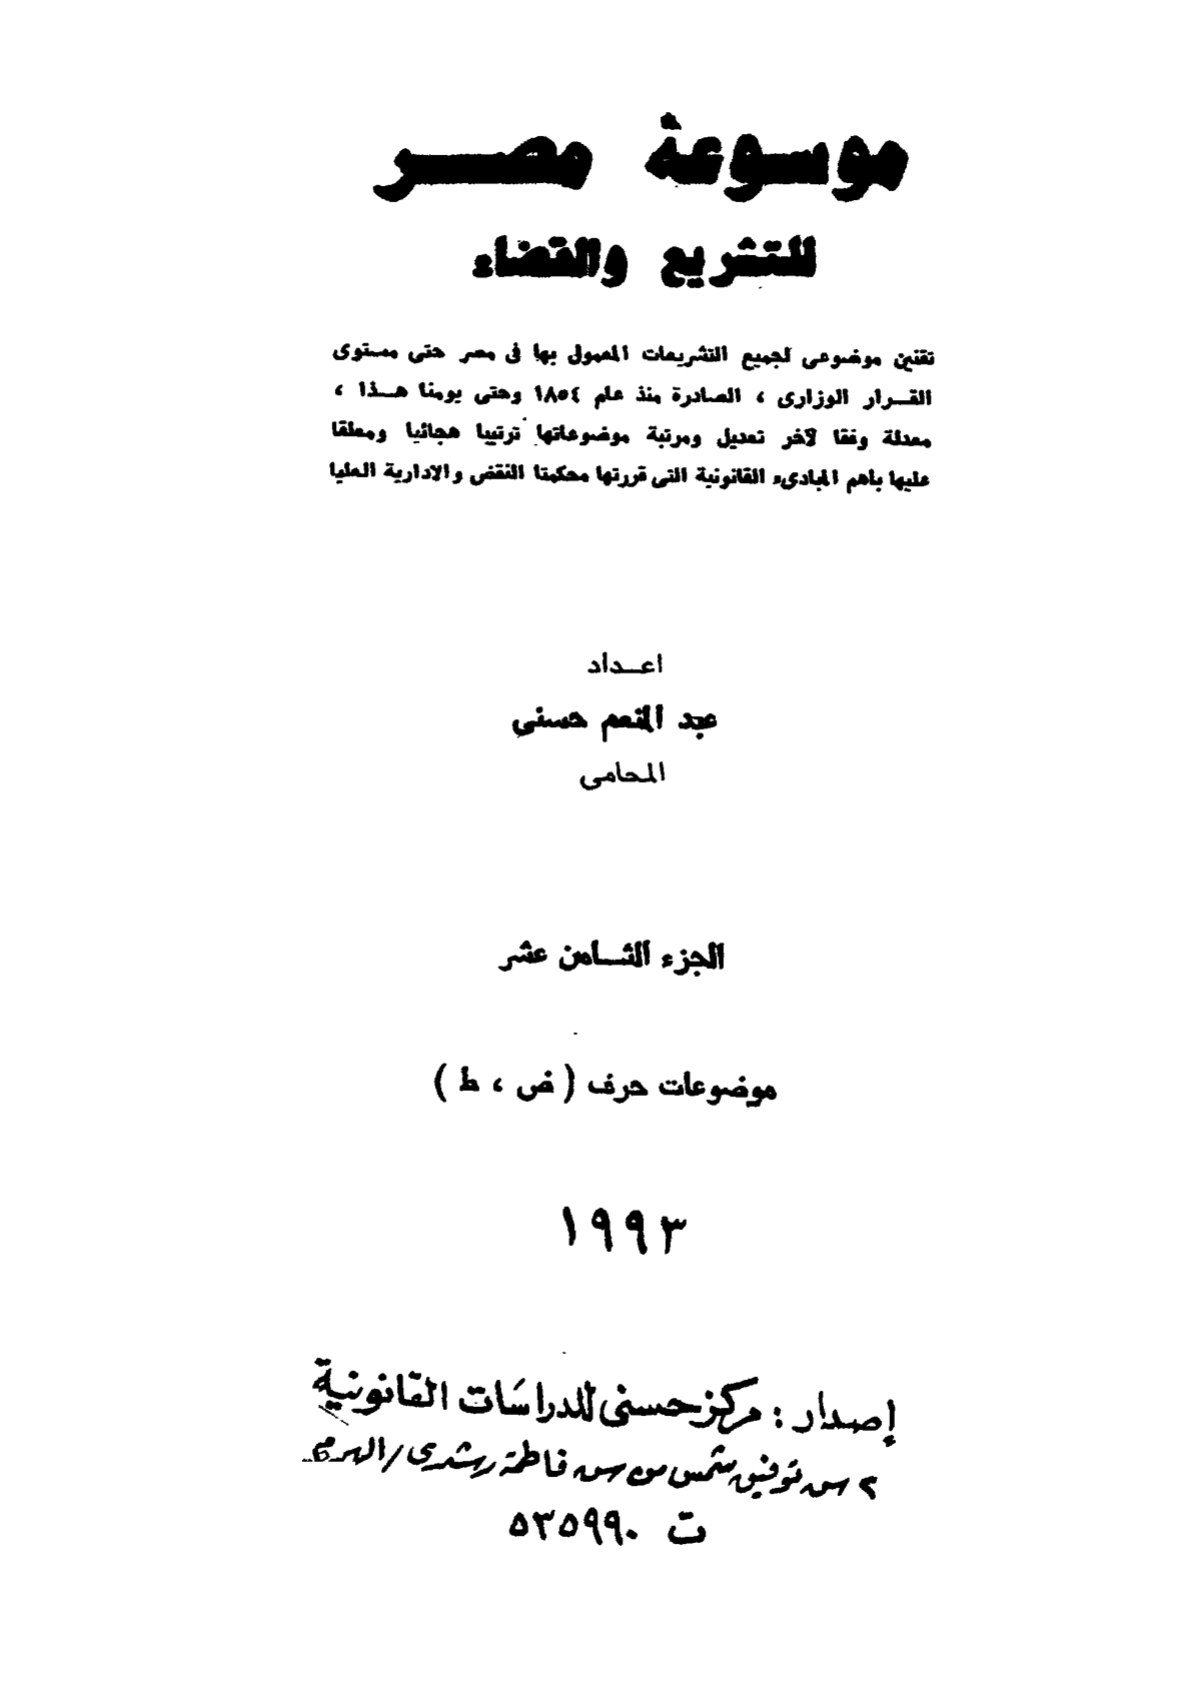 موسوعة مصـــر
للتشريع والقضاء
تقنين موضوعى لجميع التشريعات المعمول بها فى مصر حتى مستوى
القـــرار الوزارى ، الصادرة منذ عام ١٨٥٤ وحتى يومنا هــذا ،
معدلة وفقا لآخر تعديل ومرتبة موضوعاتها ترتيبا هجائيا ومعلقا
عليها بأهم المبادىء القانونية التى قررتها محكمتا النقض والادارية العليا
اعــداد
عبد المنعم حسنى
المحامى
الجزء الثــامن عشر
موضوعات حرف ( ض ، ط )
١٩٩٣
إصدار : مركز حسنى للدراسات القانونية
٢ ش توفيق شمس من ش فاطمة رشدى / الهرم
ت ٥٣٥٩٩٠